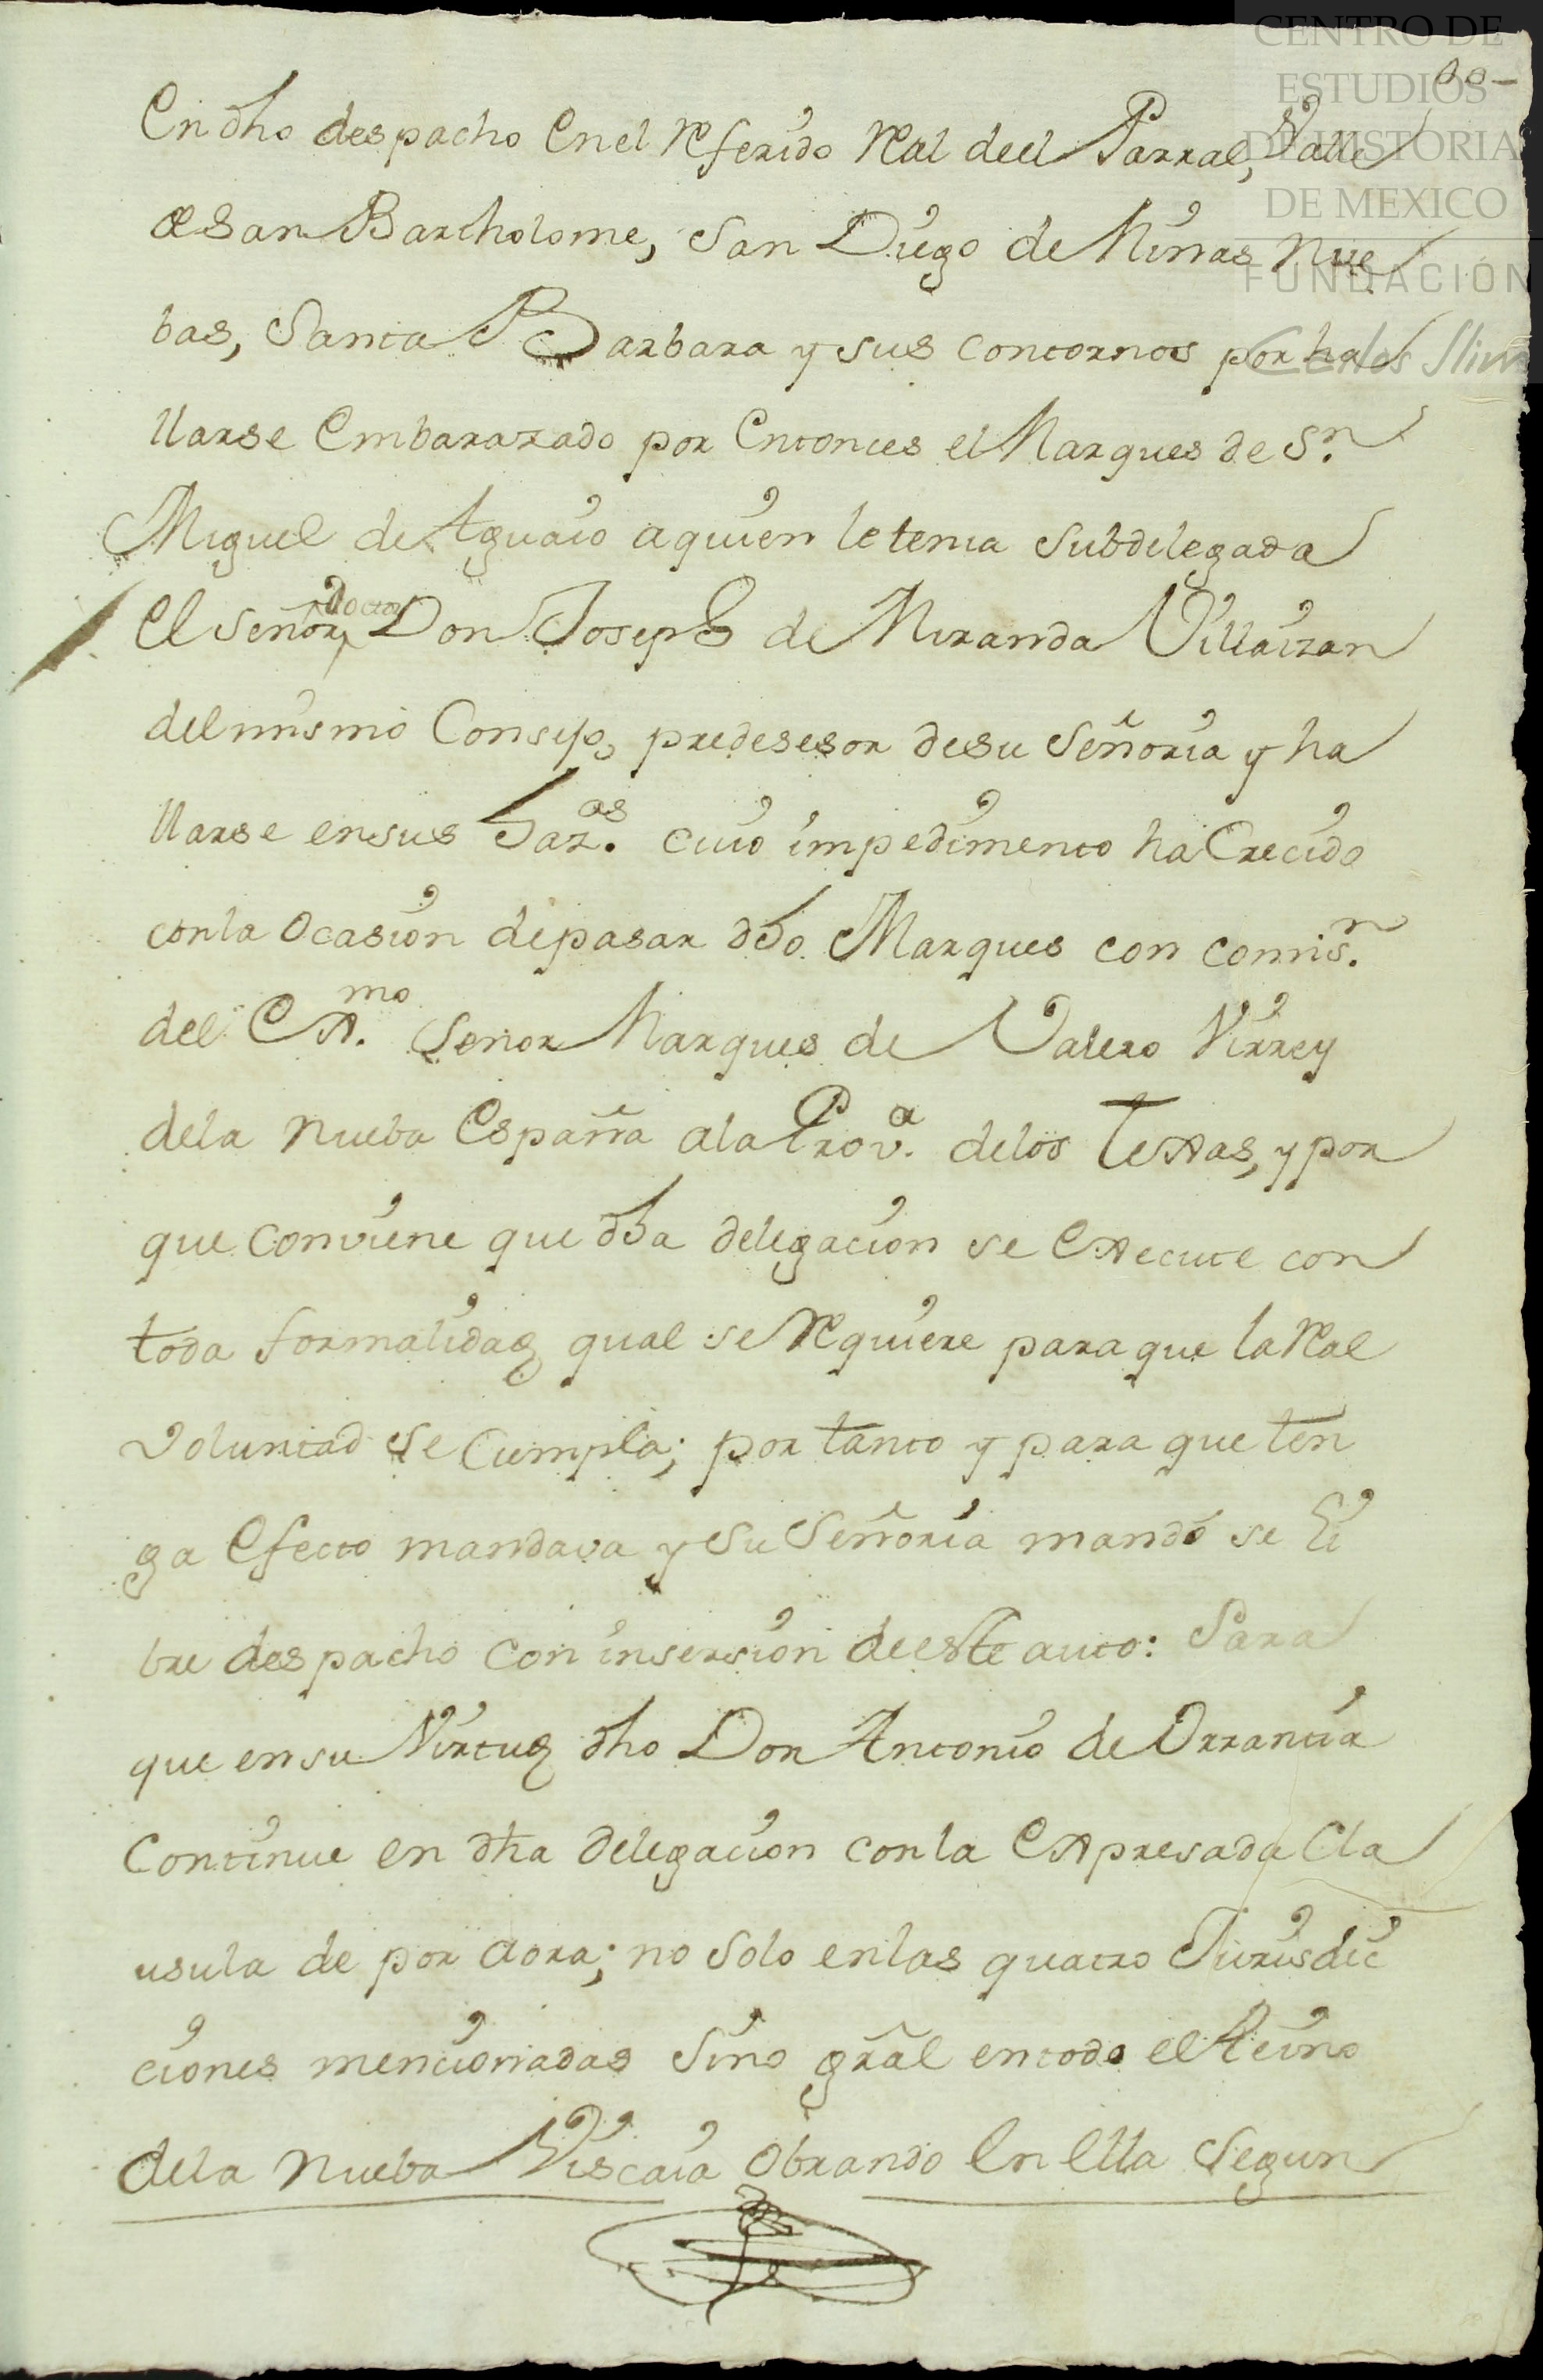 CENTRO DE
ESTUDIOS
DE HISTORIA
DE MEXICO
FUNDACIÓN
Carlos Slim
En dho despacho en el Referido Real de el Parral, Valle
de San Bartholome, San Diego de Minas Nue
bas, Santa Barbara y sus contornos por ha
llarse embarazado por entonces el Marques de Sn.
Miguel de Aguaio a quien le tenia subdelegada
El señor Doctor Don Joseph de Miranda Villaizan
del mismo Consejo, predesesor de su Señoria y ha
llarse en sus Haz.as cuio impedimento ha crecido
con la ocasion de pasar dho Marques con comis.n
del Ex.mo Señor Marques de Valero Virrey
de la nueba España a la Prov.a de los Texas, y por
que conviene que dha delegacion se execute con
toda formalidad qual se Requiere para que la Real
voluntad se cumpla; por tanto y para que ten
ga efecto mandava y su Señoria mandó se li
bre despacho con insersion de este auto: Para
que en su Virtud dho Don Antonio de Orrantia
continue en dha delegacion con la expresada cla
usula de por aora; no solo en las quatro Jurisdic
ciones mencionadas sino gral en todo el Reino
de la nueba Viscaia obrando en ella segun